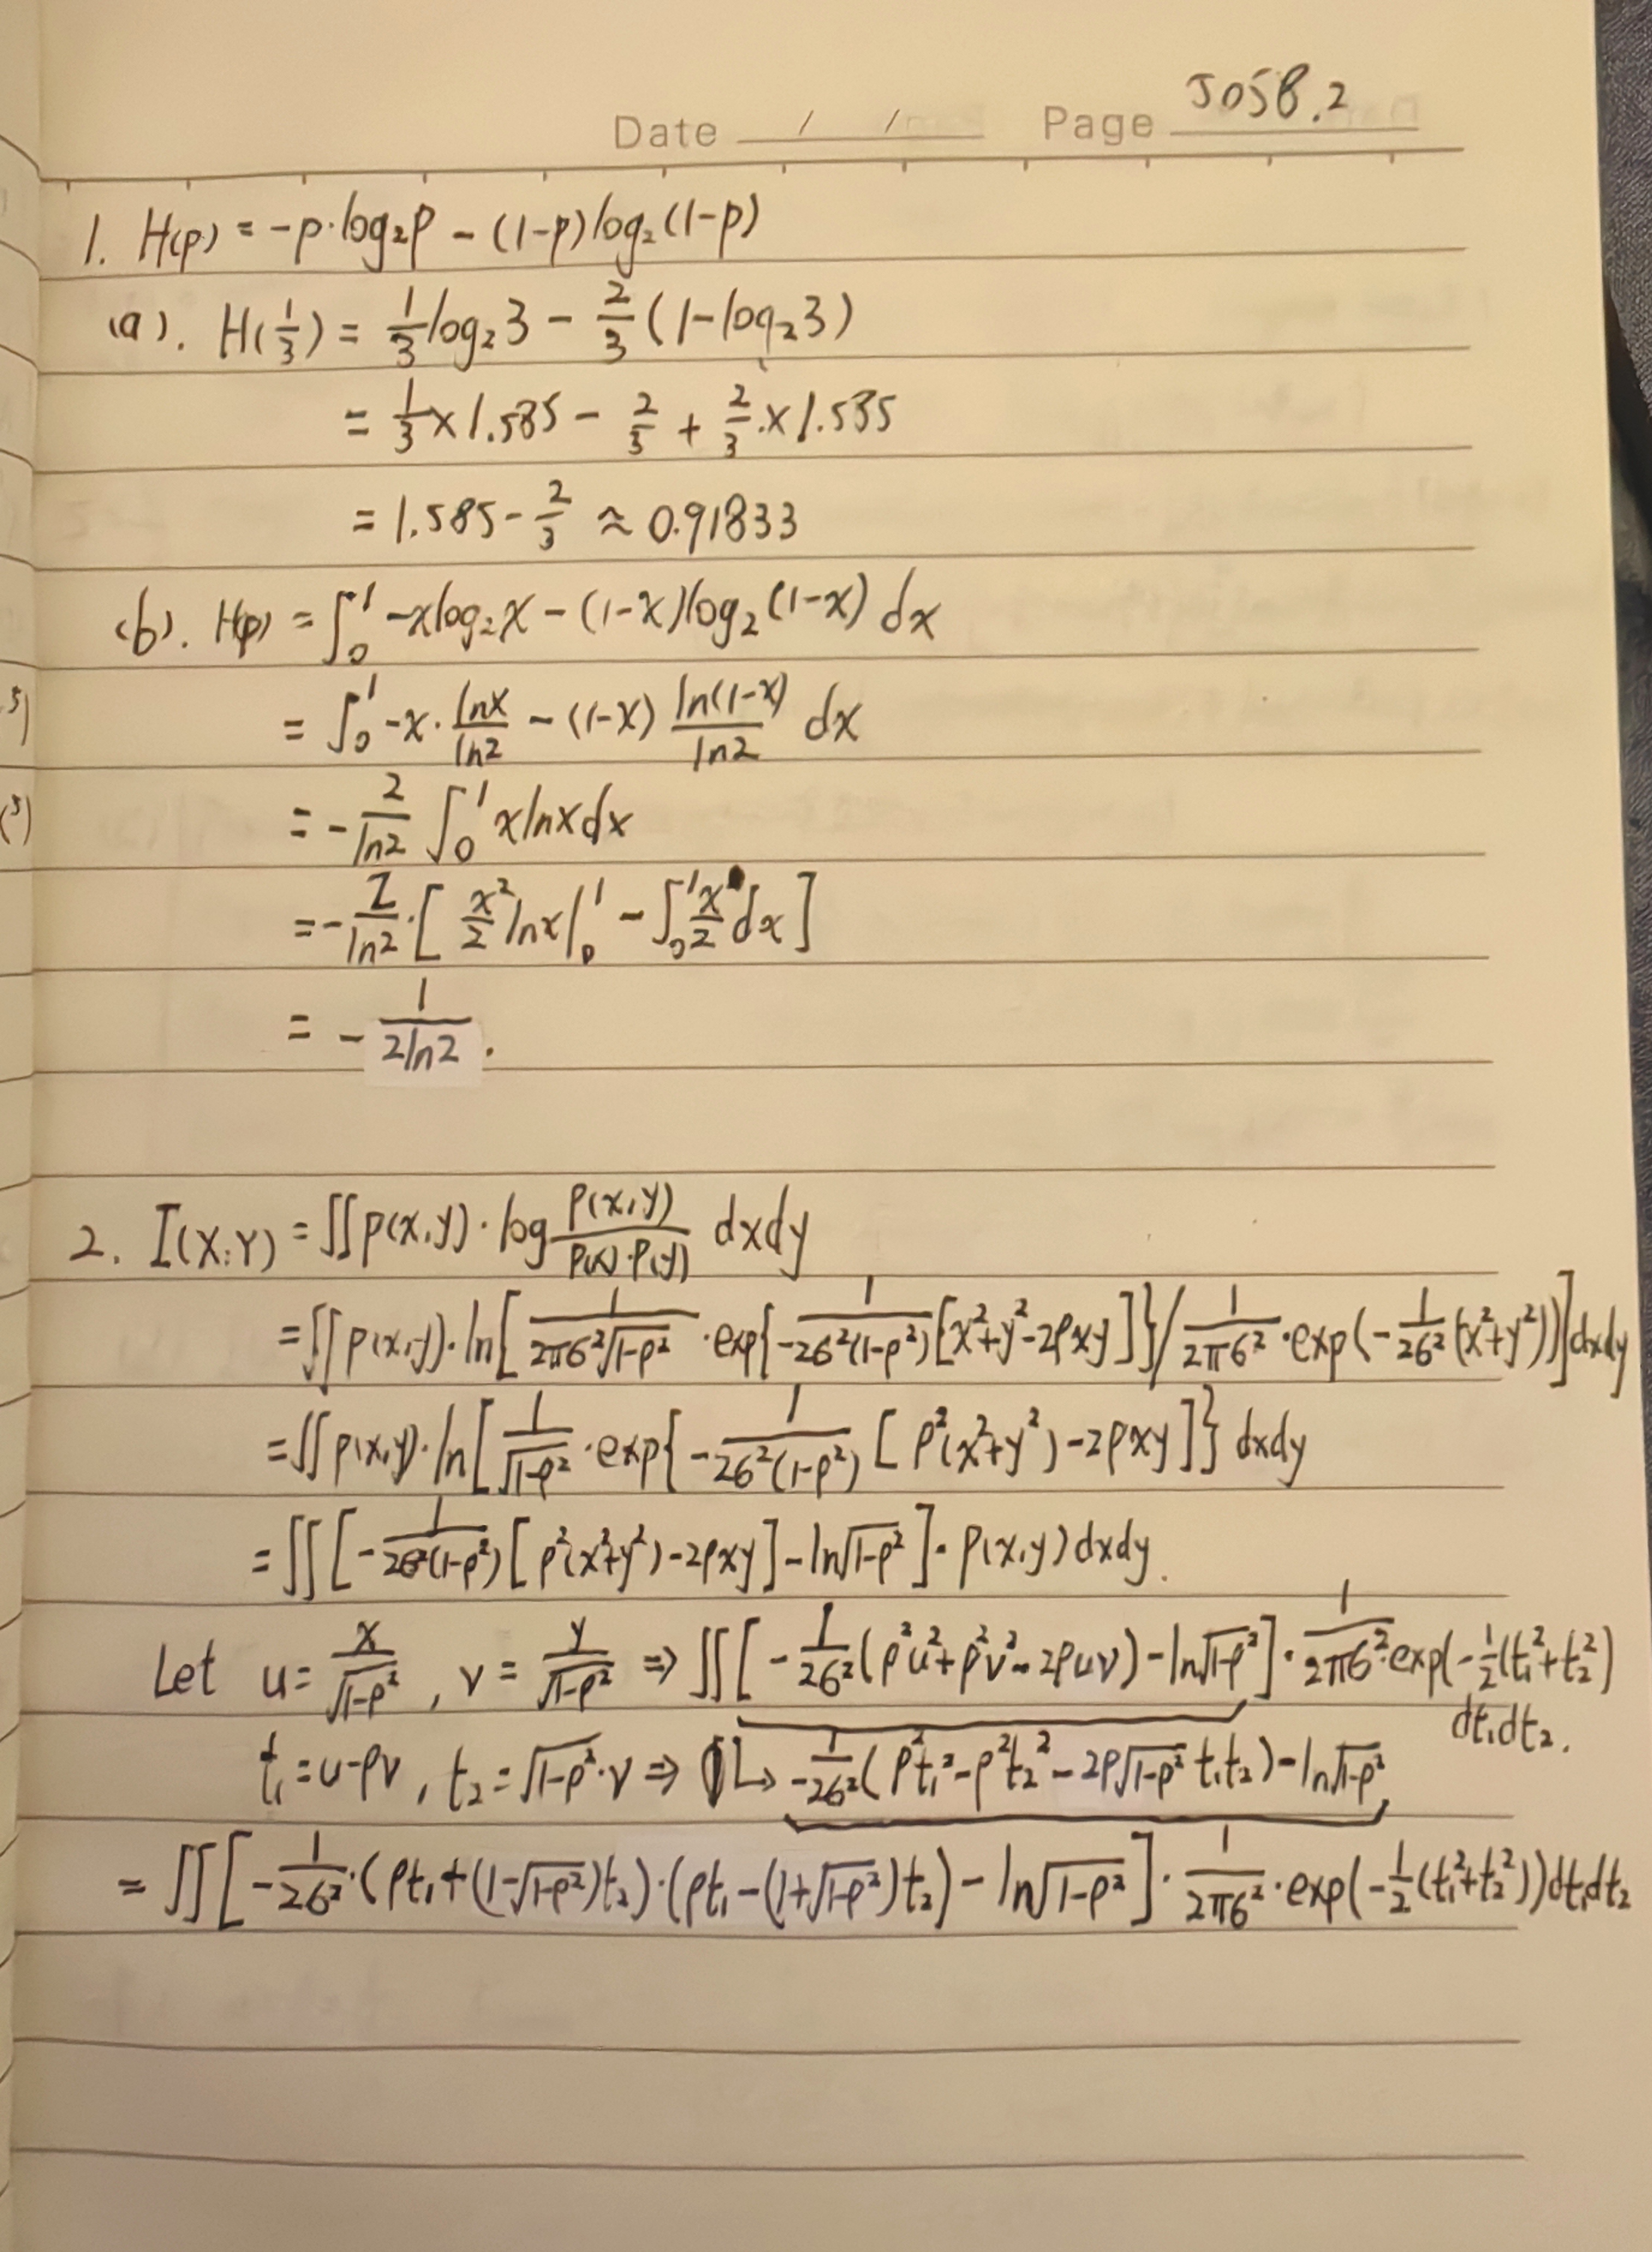 Date / / Page 5058.2
1. H(p) = -p·log₂p - (1-p)log₂(1-p)
(a). H(1/3) = 1/3 log₂3 - 2/3 (1-log₂3)
= 1/3 × 1.585 - 2/3 + 2/3 · × 1.585
= 1.585 - 2/3 ≈ 0.91833
(b). H(p) = ∫₀¹ -xlog₂x - (1-x)log₂(1-x) dx
= ∫₀¹ -x· lnx/ln2 - (1-x) ln(1-x)/ln2 dx
= - 2/ln2 ∫₀¹ xlnxdx
= - 2/ln2 · [ x²/2 lnx|₀¹ - ∫₀¹ x/2 dx ]
= - 1/(2ln2) .
2. I(X;Y) = ∬p(x,y)· log p(x,y)/(p(x)·p(y)) dxdy
= ∬p(x,y)· ln[ 1/(2πσ²√(1-ρ²)) ·exp{- 1/(2σ²(1-ρ²)) [x²+y²-2ρxy]} / 1/(2πσ²) ·exp(- 1/(2σ²) (x²+y²))]dxdy
= ∬p(x,y)· ln[ 1/√(1-ρ²) ·exp{- 1/(2σ²(1-ρ²)) [ ρ²(x²+y²)-2ρxy]} dxdy
= ∬ [ - 1/(2σ²(1-ρ²)) [ ρ²(x²+y²)-2ρxy] - ln√(1-ρ²) ] · p(x,y)dxdy.
Let u = x/√(1-ρ²) , v = y/√(1-ρ²) ⇒ ∬ [ - 1/(2σ²) (ρ²u²+ρ²v²-2ρuv) - ln√(1-ρ²) ] · 1/(2πσ²) ·exp(- 1/2 (t₁²+t₂²)
dt₁dt₂.
t₁ = u-ρv , t₂ = √(1-ρ²)·v ⇒ ↳ - 1/(2σ²) (ρ²t₁²-ρ²t₂²-2ρ√(1-ρ²) t₁t₂) - ln√(1-ρ²)
= ∬ [ - 1/(2σ²) ·(ρt₁+(1-√(1-ρ²))t₂)·(ρt₁-(1+√(1-ρ²))t₂) - ln√(1-ρ²) ] · 1/(2πσ²) ·exp(- 1/2 (t₁²+t₂²))dt₁dt₂